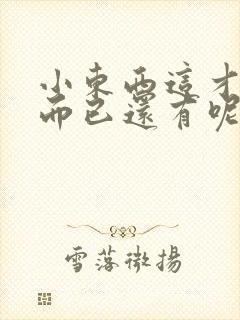 小東西這才
而已還有呢
雪落微揚